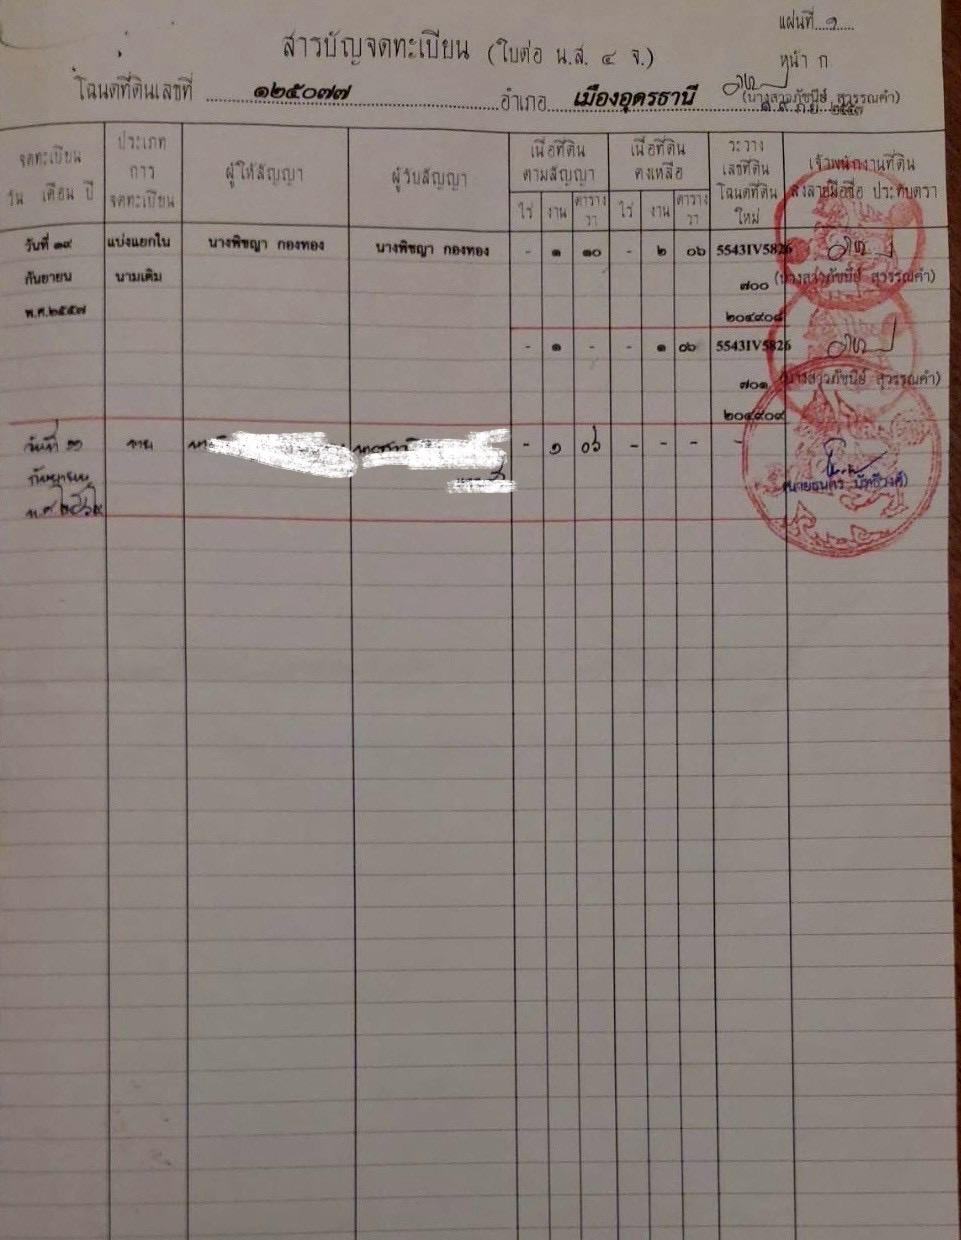 แผ่นที่ ๑
สารบัญจดทะเบียน (ใบต่อ น.ส. ๔ จ.)
หน้า ก
โฉนดที่ดินเลขที่ ๑๒๕๐๗๗ อำเภอ เมืองอุดรธานี
(นางสาวภัชนีย์ สุวรรณคำ)
จดทะเบียน วัน เดือน ปี
ประเภทการจดทะเบียน
ผู้ให้สัญญา
ผู้รับสัญญา
เนื้อที่ดินตามสัญญา
เนื้อที่ดินคงเหลือ
ระวาง เลขที่ดิน โฉนดที่ดินใหม่
เจ้าพนักงานที่ดิน ลงลายมือชื่อ ประทับตรา
ไร่ งาน ตารางวา ไร่ งาน ตารางวา
วันที่ ๑๙ แบ่งแยกใน นางพิชญา กองทอง นางพิชญา กองทอง - ๑ ๑๐ - ๒ ๐๖ 5543IV5826
กันยายน นามเดิม ๗๐๐ (นางสาวภัชนีย์ สุวรรณคำ)
พ.ศ.๒๕๕๗ ๒๐๔๙๐๘
- ๑ - - ๑ ๐๖ 5543IV5826
๗๐๑ (นางสาวภัชนีย์ สุวรรณคำ)
๒๐๔๙๐๙
วันที่ ๑๑ ขาย - ๑ ๐๖ - - - -
กันยายน
พ.ศ.